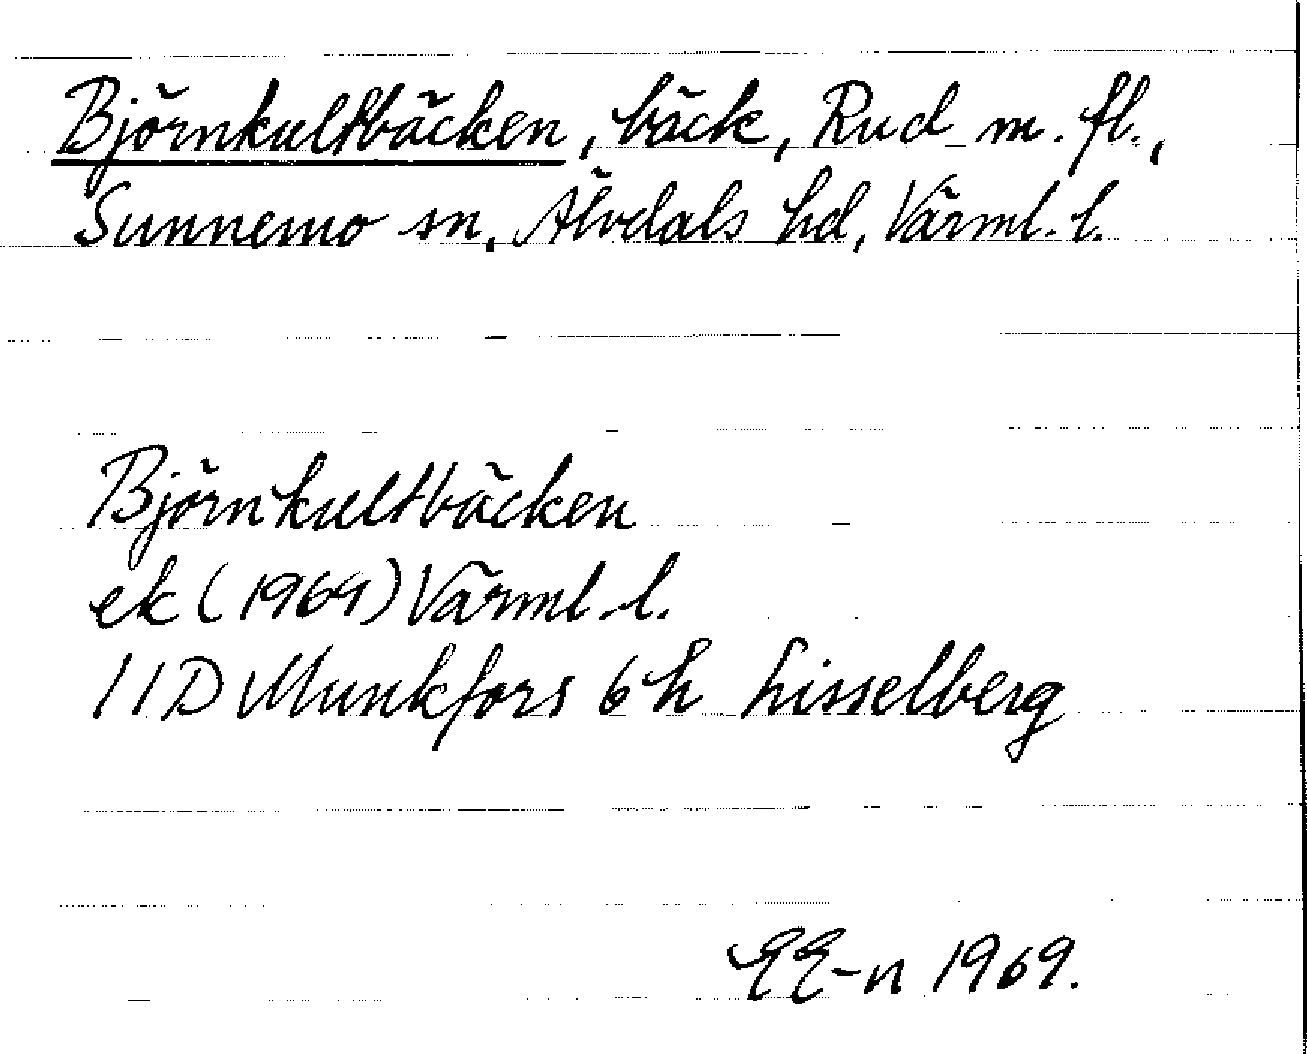 Björnkultbäcken, bäck, Rud m. fl.,
Sunnemo sn, Älvdals hd, Värml. l.
Björnkultbäcken
ek (1964) Värml. l.
11D Munkfors 6h Lisselberg
EE-n 1969.